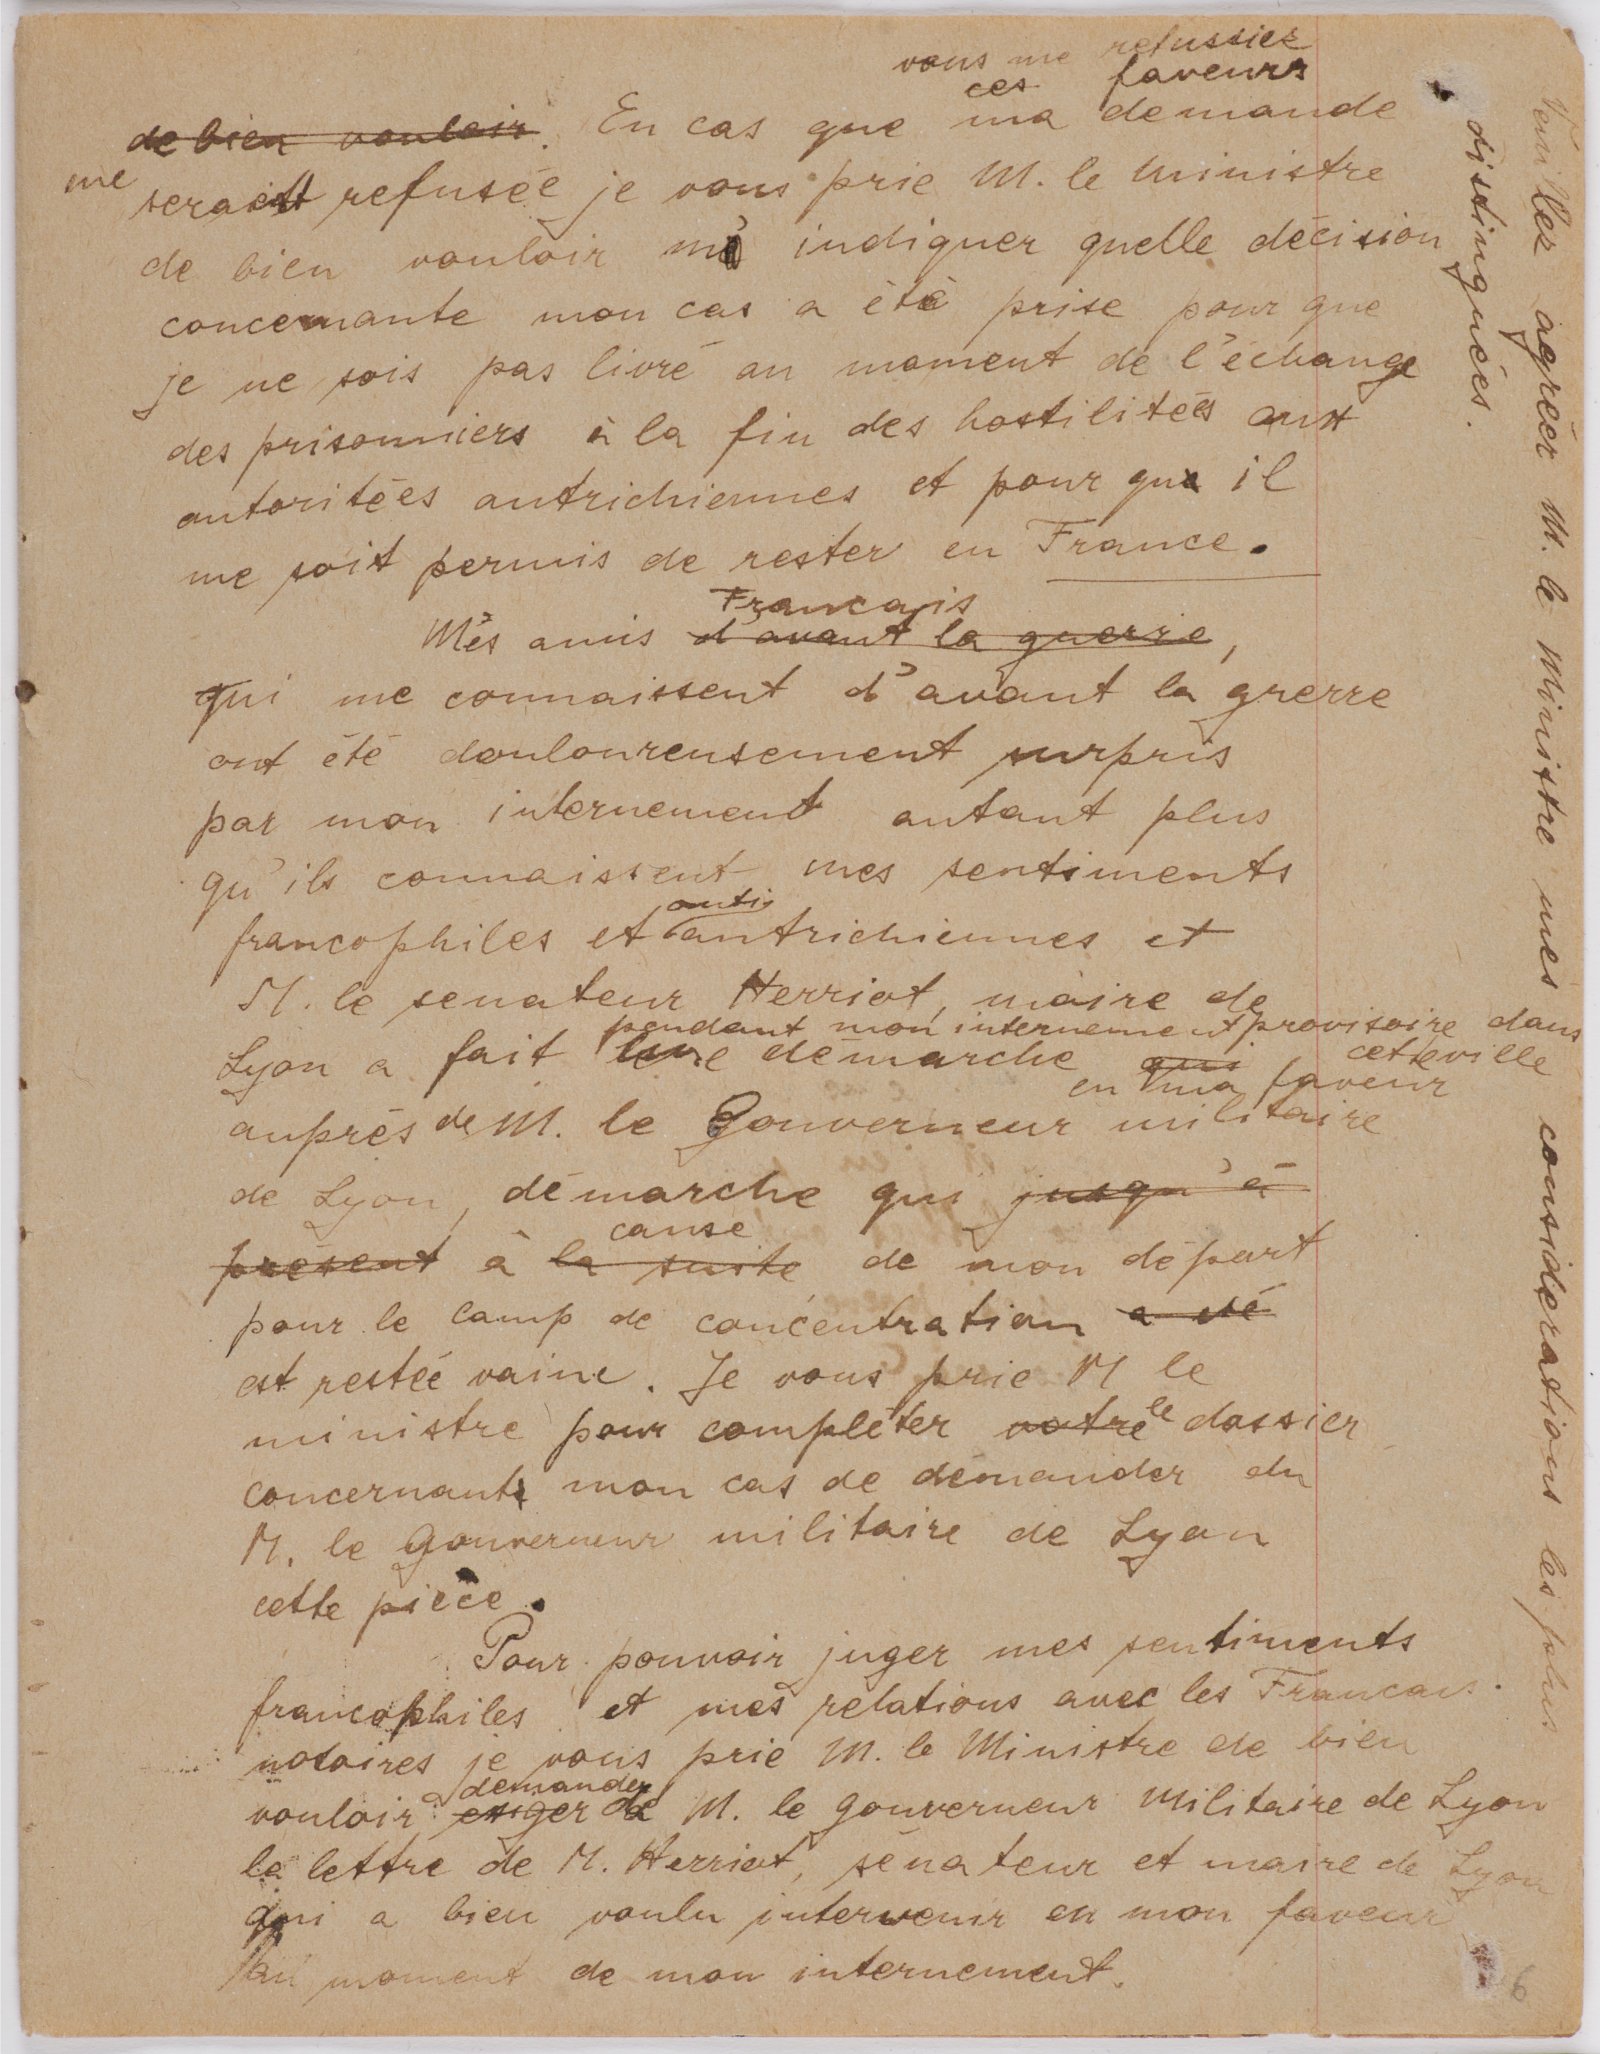 vous me refussiez
ces faveurs
de bien vouloir. En cas que ma demande
me seraient refusée je vous prie M. le Ministre
de bien vouloir m' indiquer quelle décision
concernante mon cas a été prise pour que
je ne sois pas livré au moment de l'échange
des prisonniers à la fin des hostilitées aux
autoritées autrichiennes et pour que il
me soit permis de rester en France.
Francais
Mes amis d'avant la guerre,
qui me connaissent d'avant la grerre
ont été douloureusement surpris
par mon internement autant plus
qu'ils connaissent mes sentiments
anti
francophiles et autrichiennes et
M. le senateur Herriot, maire de
pendant mon internement provisoire dans
cette ville
Lyon a fait une démarche qui
en ma faveur
auprès de M. le Gouverneur militaire
de Lyon, démarche qui jusqu'à
cause
présent à la suite de mon départ
pour le camp de concentration a été
est restée vaine. Je vous prie M le
ministre pour compléter votre le dossier
concernant mon cas de demander du
M. le Gouverneur militaire de Lyon
cette pièce.
Pour pouvoir juger mes sentiments
francophiles et mes relations avec les Francais
notoires je vous prie M. le Ministre de bien
demander
vouloir exiger de M. le gouverneur Militaire de Lyon
la lettre de M. Herriot, sénateur et maire de Lyon
qui a bien voulu intervenir en mon faveur
au moment de mon internement.
Veuillez agréer M. le Ministre mes considerations les plus
distinguées.
6